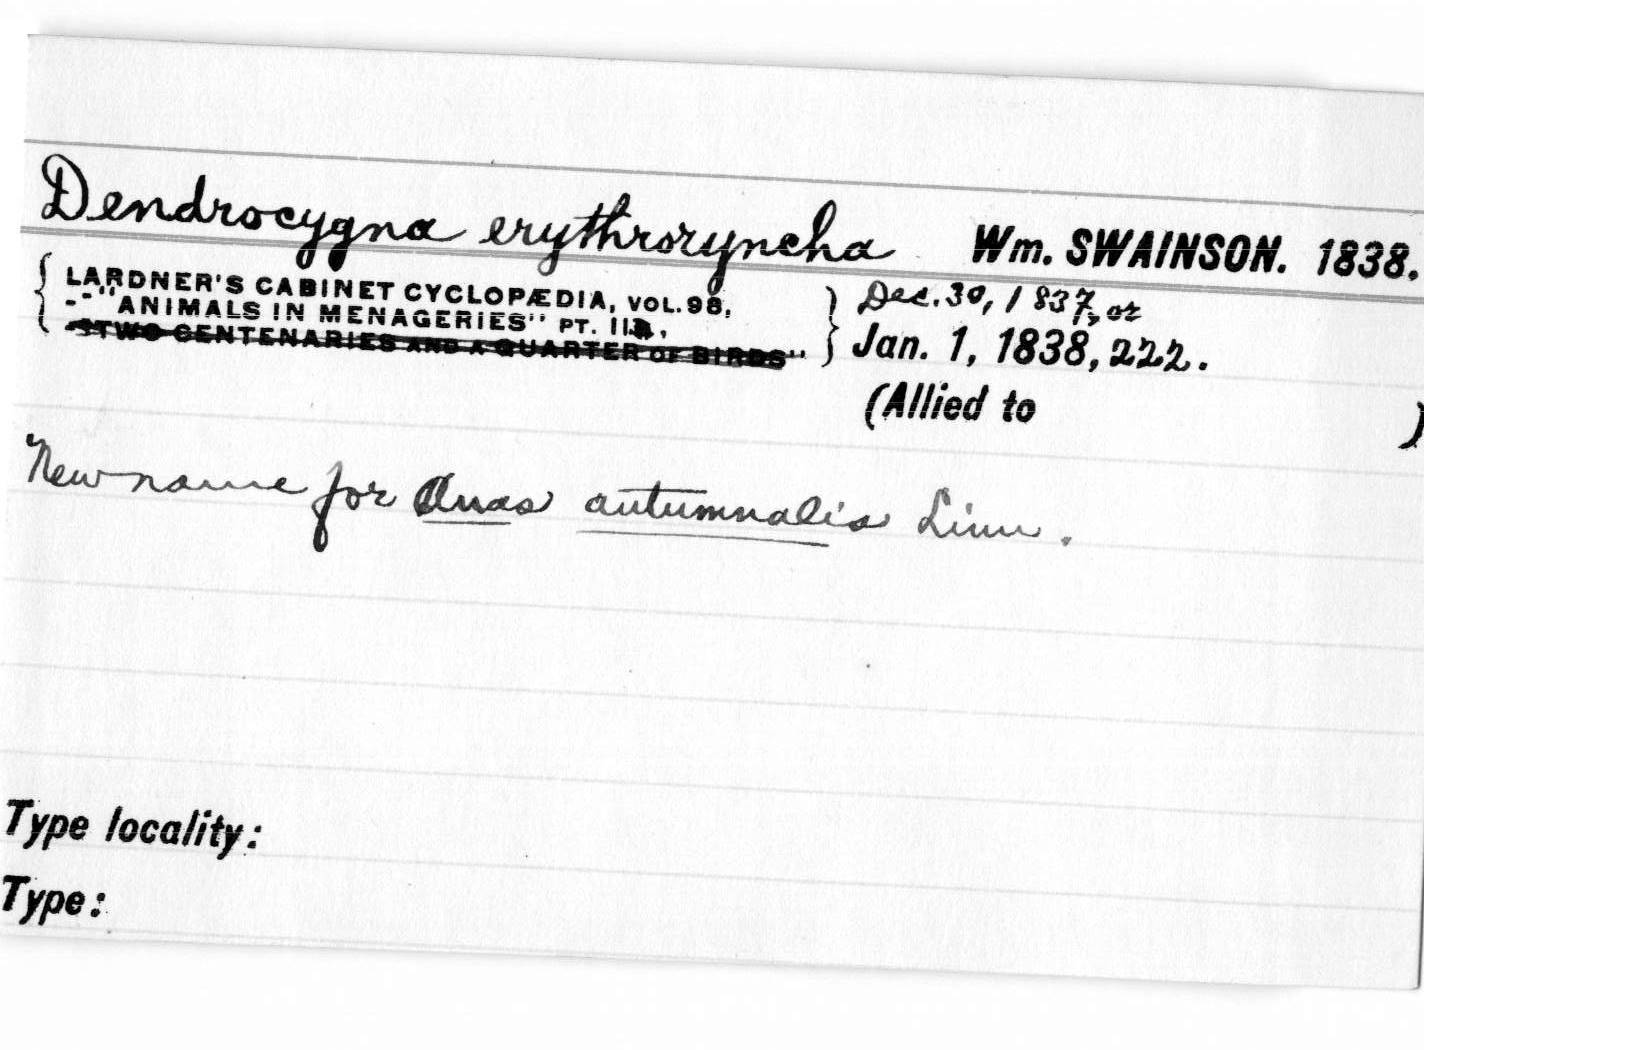 Dendrocygna erythroryncha Wm. SWAINSON. 1838.
LARDNER'S CABINET CYCLOPÆDIA, VOL. 98, Dec. 30, 1837, or
--"ANIMALS IN MENAGERIES" PT. III, Jan. 1, 1838, 222.
"TWO CENTENARIES AND A QUARTER OF BIRDS"
(Allied to )
New name for Anas autumnalis Linn.
Type locality:
Type: